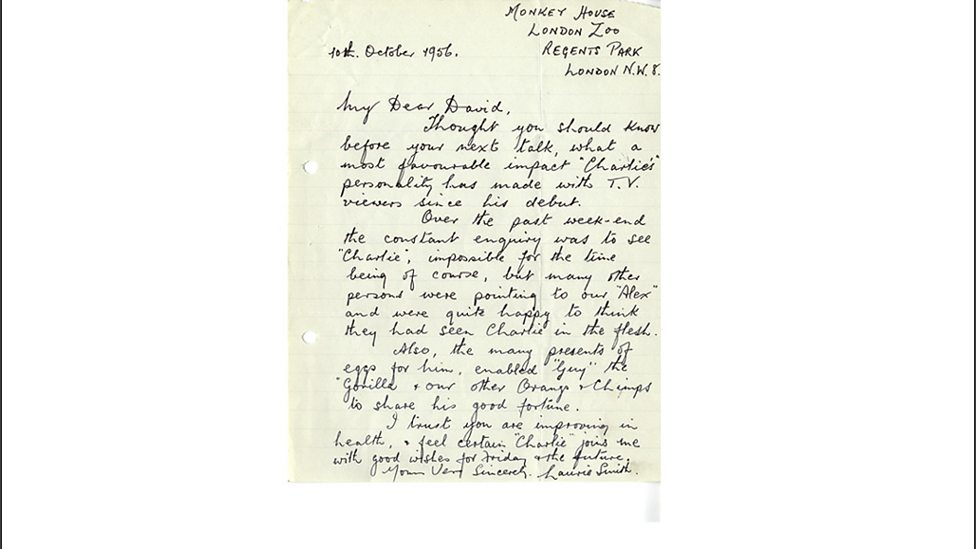 MONKEY HOUSE
LONDON ZOO
10th. October 1956.
REGENTS PARK
LONDON N.W.8.
My Dear David,
Thought you should know
before your next talk, what a
most favourable impact "Charlie's"
personality has made with T.V.
viewers since his debut.
Over the past week-end
the constant enquiry was to see
"Charlie", impossible for the time
being of course, but many other
persons were pointing to our "Alex"
and were quite happy to think
they had seen Charlie in the flesh.
Also, the many presents of
eggs for him, enabled "Guy" the
"Gorilla & our other Orangs & Chimps
to share his good fortune.
I trust you are improving in
health, & feel certain "Charlie" joins me
with good wishes for Friday & the future.
Yours Very Sincerely. Laurie Smith.